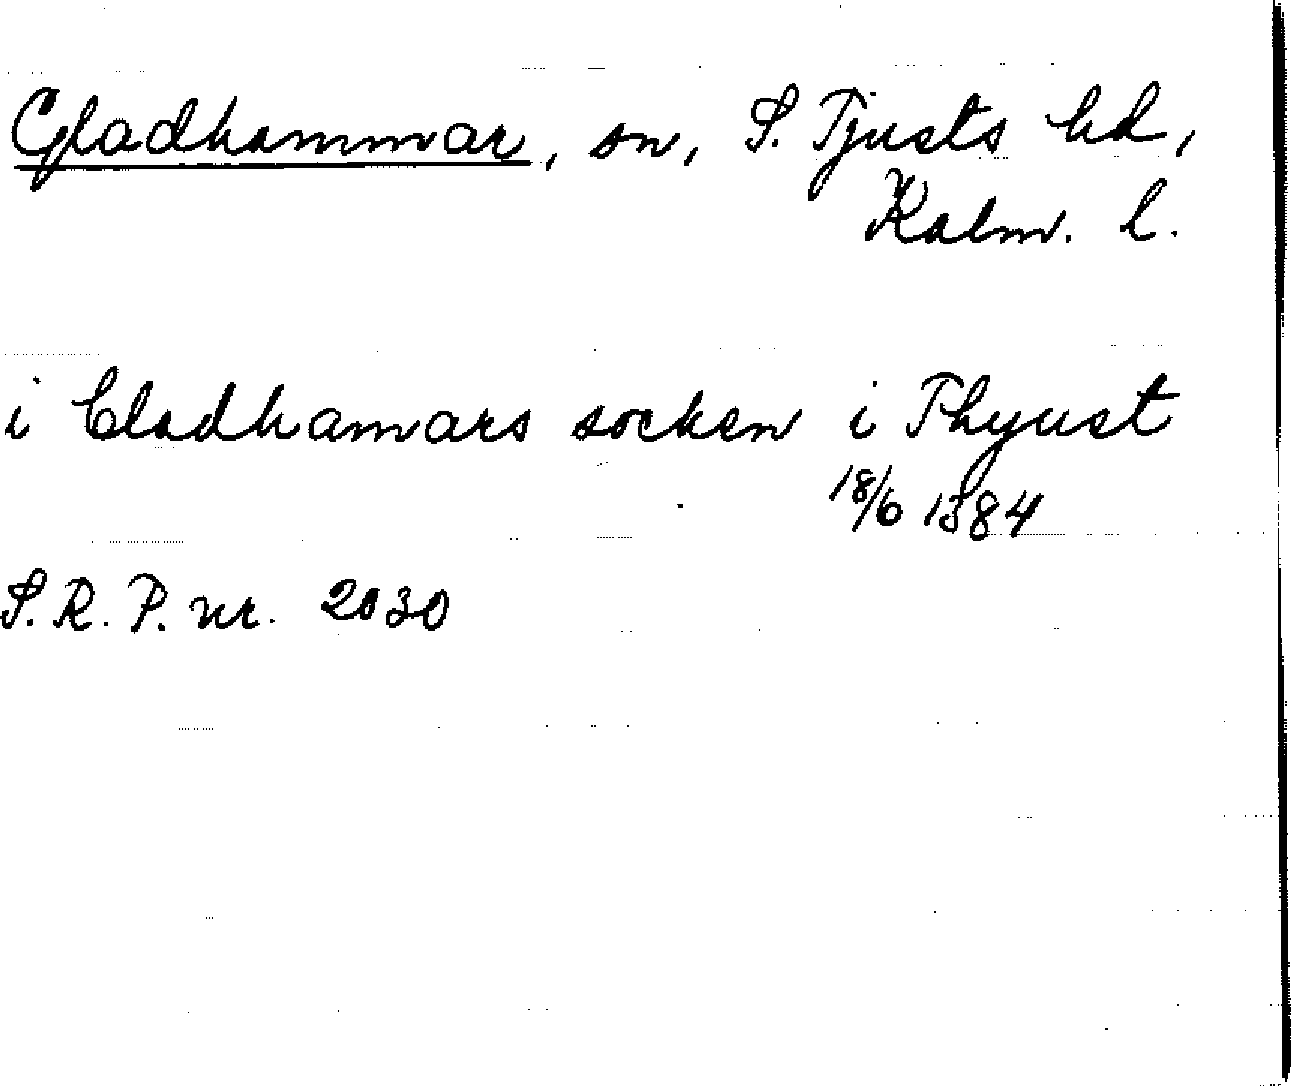 Gladhammar, sn, S. Tjusts hd,
Kalm. l.
i Cladhamars socken i Thyust
18/6 1384
S. R. P. nr. 2030